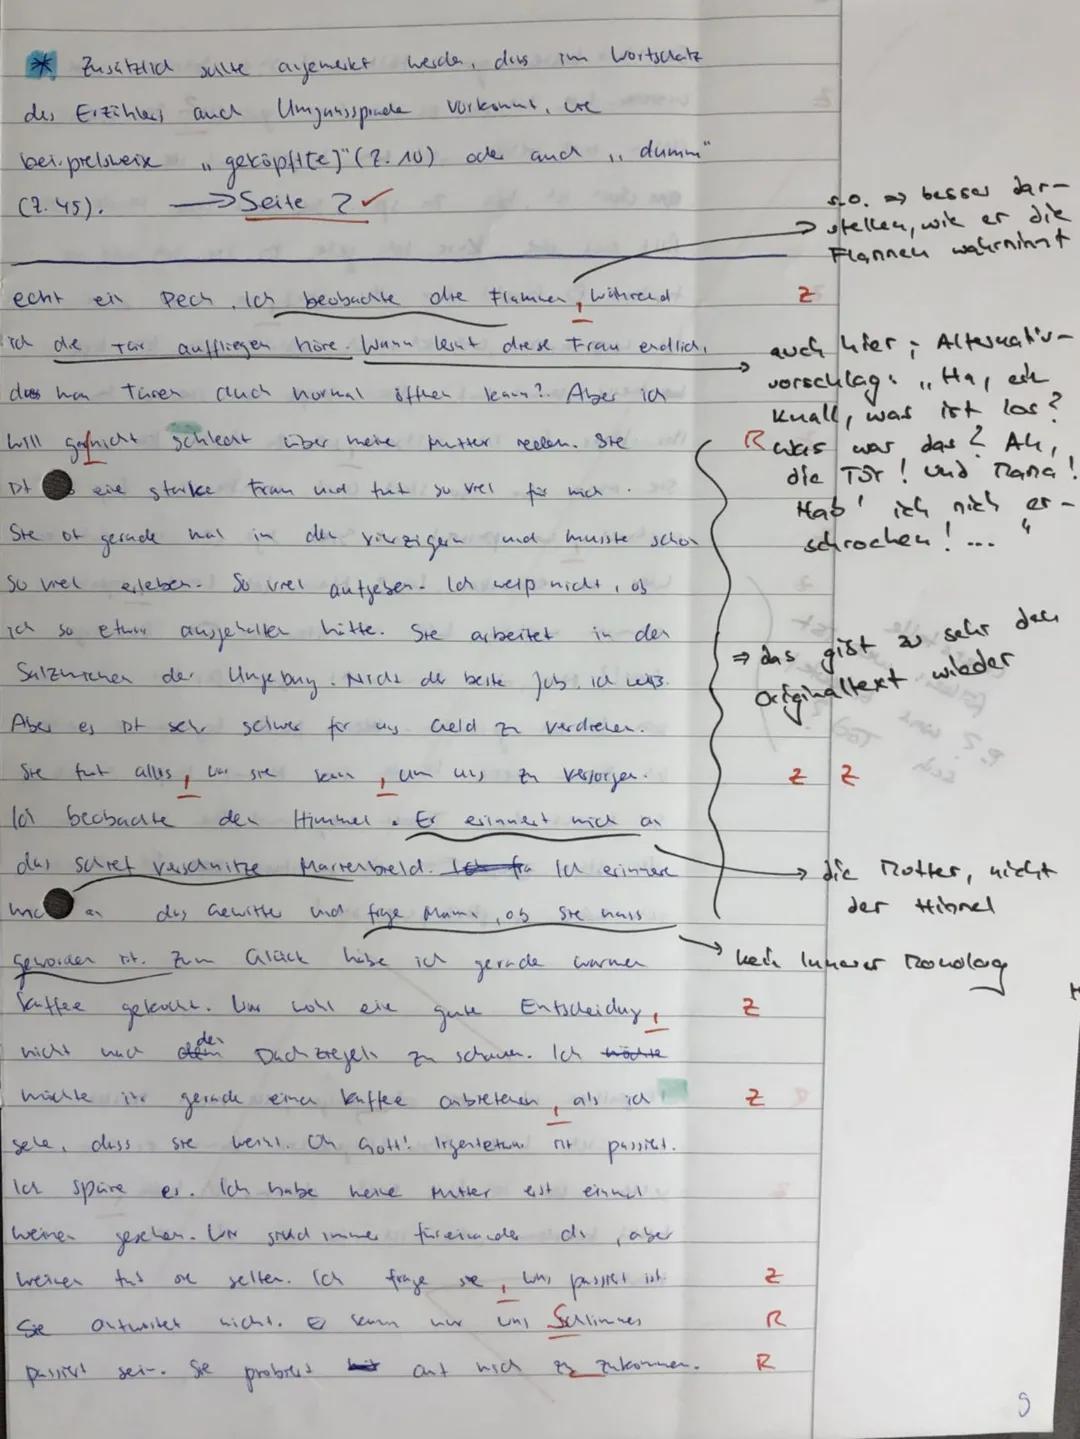 * Zusätzlich sollte angemerkt werden, dass im Wortschatz
des Erzählers auch Umgangssprache vorkommt, wie
beispielsweise „geköpft[e]" (Z. 10) oder auch „dumm"
(Z. 45). → Seite 2 ✓
s.o. ⇒ besser dar-
stellen, wie er die
Flammen wahrnimmt
echt ein Pech. Ich beobachte die Flammen, während
Z
ich die Tür auffliegen höre. Wann lernt diese Frau endlich,
dass man Türen auch normal öffnen kann? Aber ich
will garnicht schlecht über meine Mutter reden. Sie
R
auch hier; Alternativ-
vorschlag: „Ha, ein
Knall, was ist los?
was war das? Ah,
die Tür! Und Mama!
Hab' ich mich er-
schrocken! ... "
ist eine starke Frau und tut so viel für mich.
Sie ist gerade mal in den vierzigern und musste schon
so viel erleben. So viel aufgeben. Ich weiß nicht, ob
ich so etwas ausgehalten hätte. Sie arbeitet in den
Salzminen der Umgebung. Nicht der beste Job, ich weiß.
Aber es ist sehr schwer für uns Geld zu verdienen.
⇒ das gibt zu sehr den
Originaltext wieder
Sie tut alles, was sie kann, um uns zu versorgen.
Z Z
Ich beobachte den Himmel. Er erinnert mich an
das schief verschnitze Marienbild. Ich erinnere
→ die Mutter, nicht
der Himmel
an das Gewitter und frage Mama, ob sie nass
geworden ist. Zum Glück habe ich gerade warmen
→ kein Innerer Monolog
Kaffee gekocht. War wohl eine gute Entscheidung,
Z
nicht nach den Dachziegeln zu schauen. Ich
möchte ihr gerade einen Kaffee anbieten, als ich
Z
sehe, dass sie weint. Oh Gott! Irgentetwas ist passiert.
Ich spüre es. Ich habe meine Mutter erst einmal
weinen gesehen. Wir sind immer füreinander da, aber
weinen tut sie selten. Ich frage sie, was passiert ist.
Z
Sie antwortet nicht. Es kann nur was Schlimmes
R
passiert sein. Sie probiert auf mich zu zukommen.
R